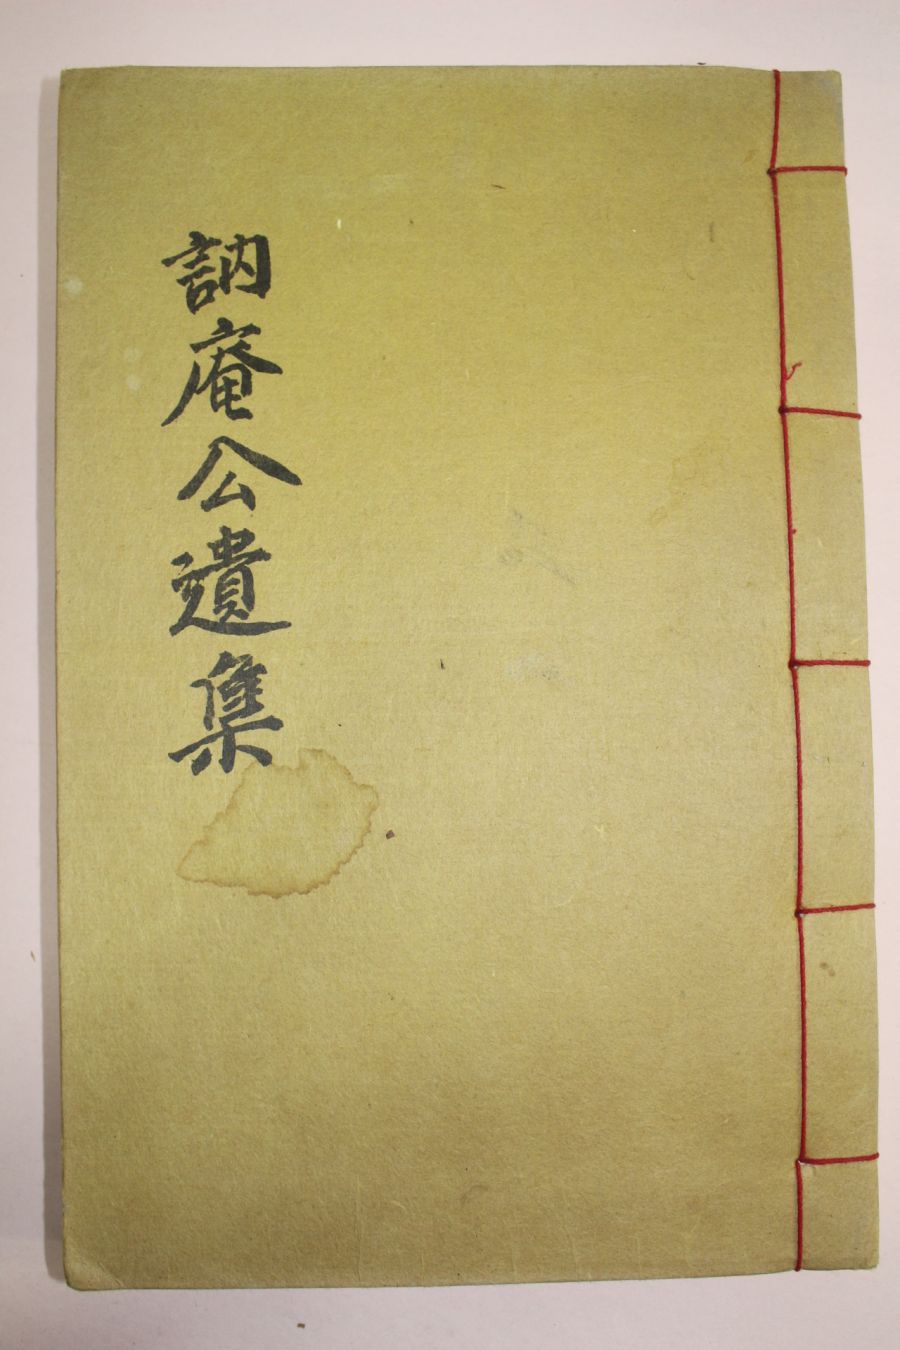 訥庵公遺集